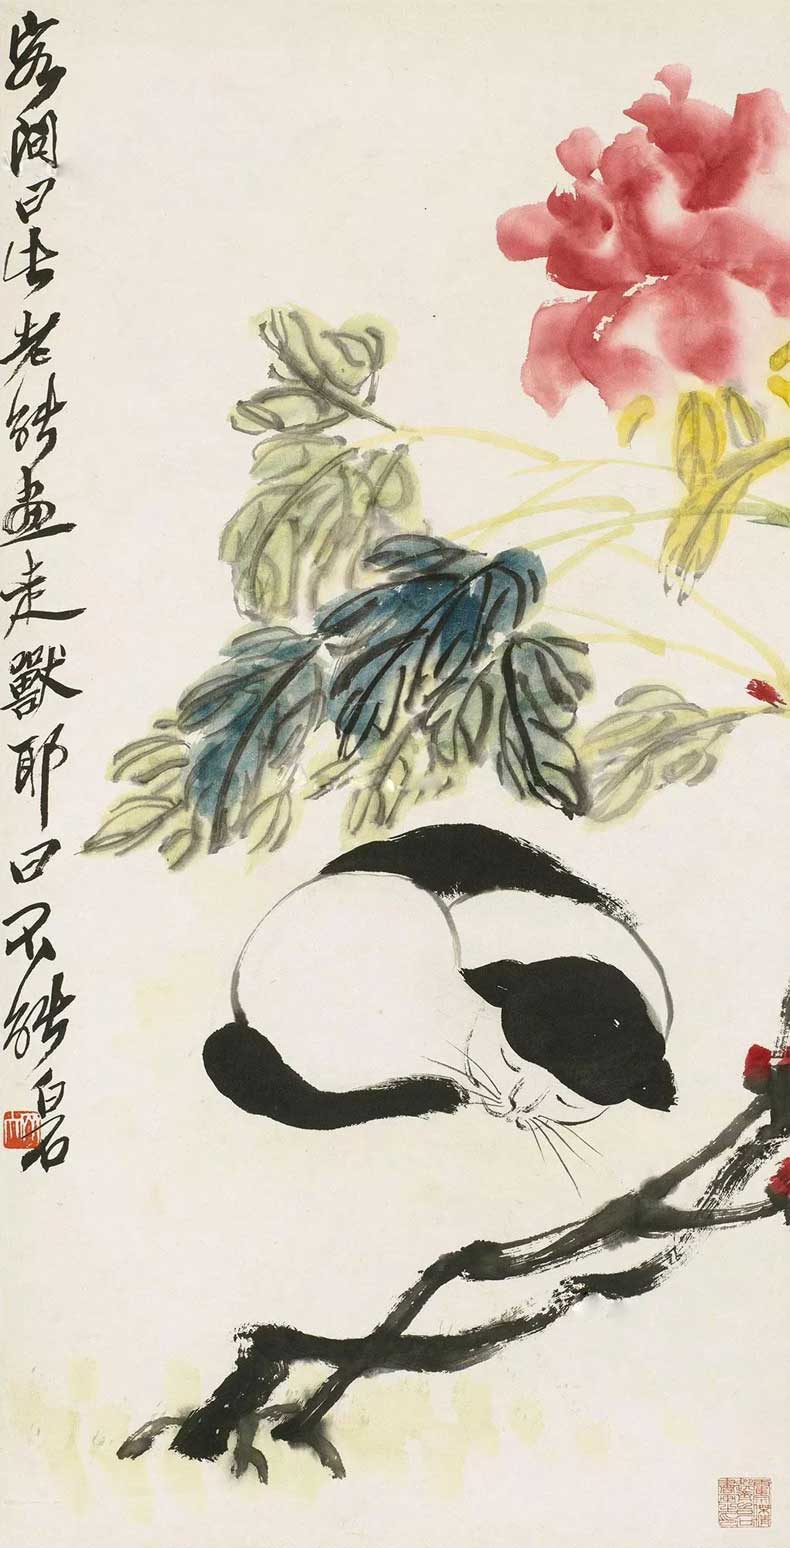 客问曰先老能畫走獸耶曰不能白石